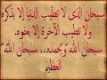 سبحان الذي لا تطيب الدنيا إلا بذكره
ولا تطيب الآخرة إلا بعفوه
سبحان الله وبحمده، سبحان الله
العظيم